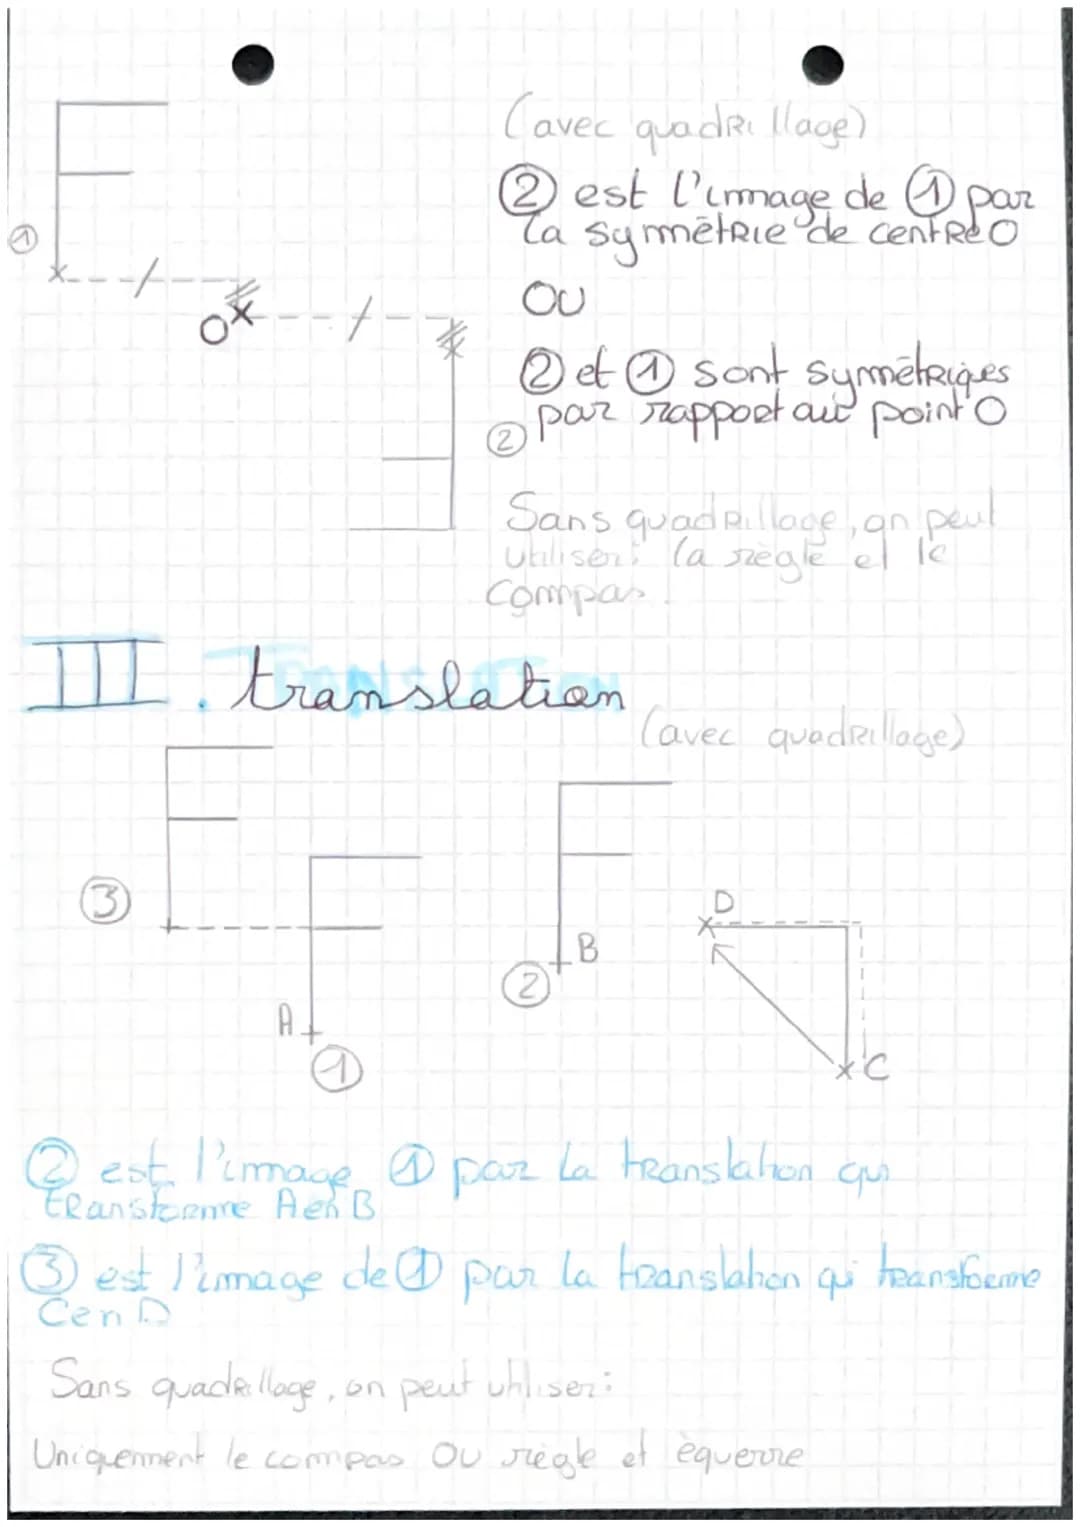 (avec quadrillage)
② est l'image de ① par
la symmétrie de centre O
①
OU
O
② et ① sont symmétriques
par rapport au point O
②
Sans quadrillage, on peut
utiliser: la règle et le
compas.
III. translation
(avec quadrillage)
③
D
B
②
A
C
①
② est l'image ① par la translation qui
transforme A en B
③ est l'image de ① par la translation qui transforme
C en D
Sans quadrillage, on peut utiliser:
Uniquement le compas OU règle et équerre